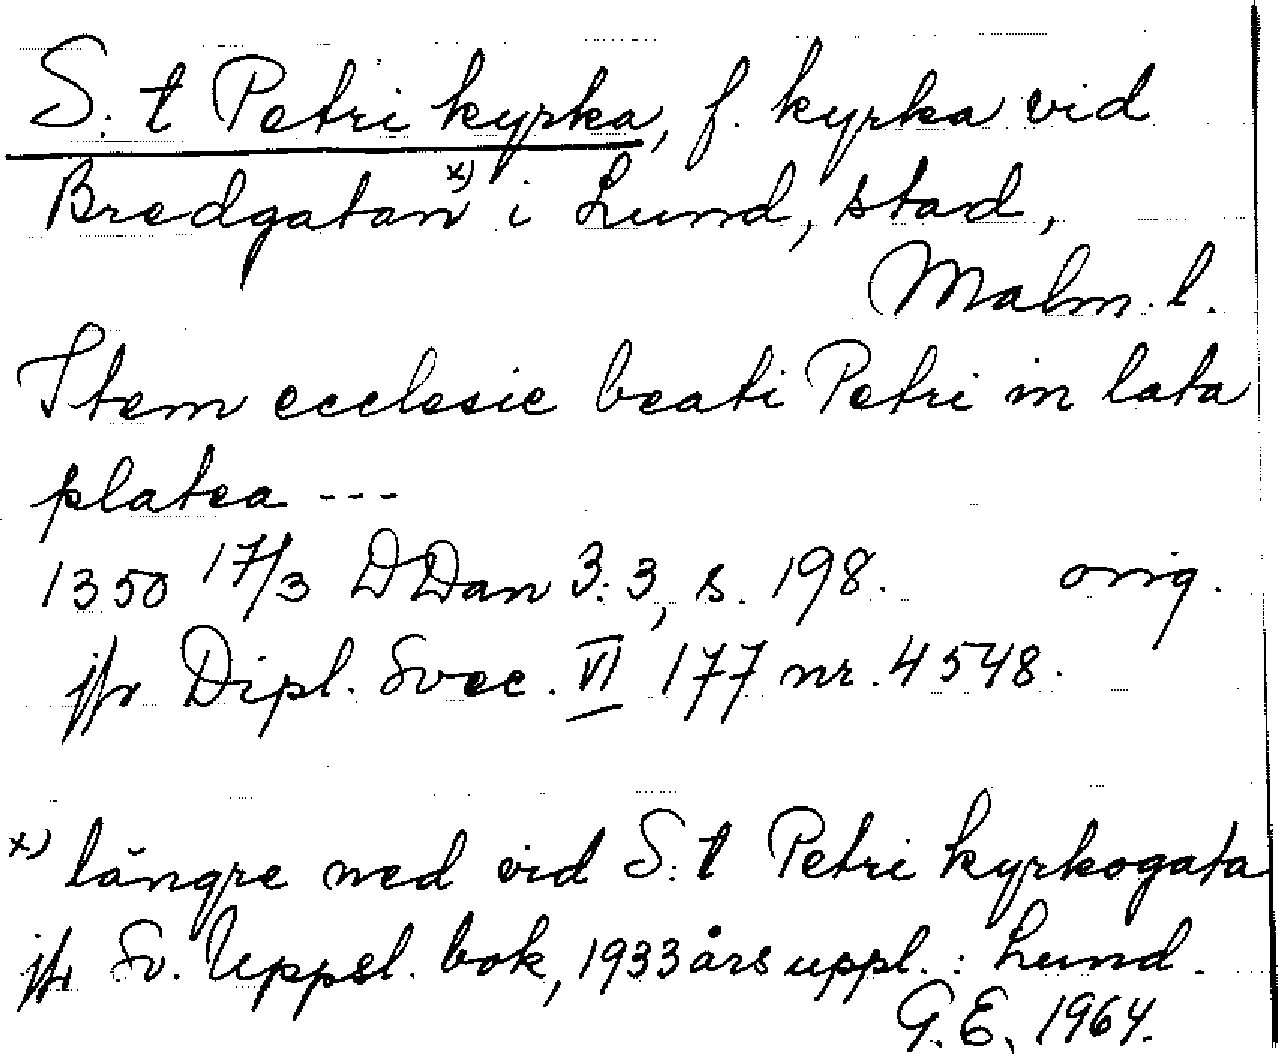 S:t Petri kyrka, f. kyrka vid
Bredgatan x) i Lund, stad,
Malm. l.
Item ecclesie beati Petri in lata
platea ---
1350 17/3 DDan 3:3, s. 198. orig.
jfr Dipl. Svec. VI 177 nr. 4548.
x) längre ned vid S:t Petri kyrkogata
jfr Sv. Uppsl. bok, 1933 års uppl.: Lund.
G.E. 1964.